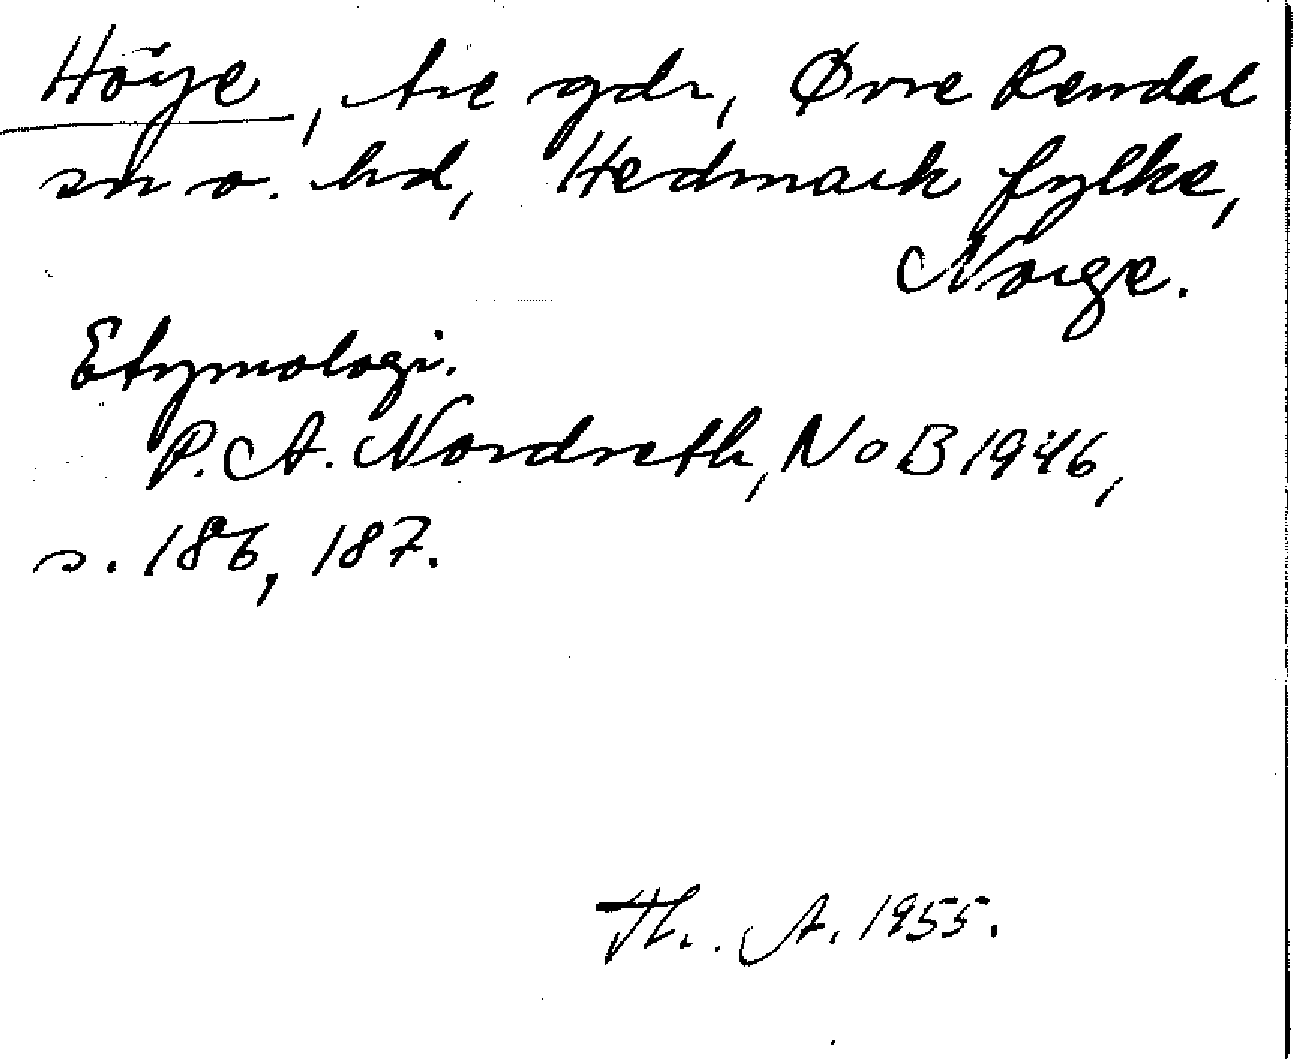 Höye, tre gdr, Øvre Rendal
sn o. hd, Hedmark fylke,
Norge.
Etymologi.
P. A. Nordseth, NoB 1946,
s. 186, 187.
Th. A. 1955.